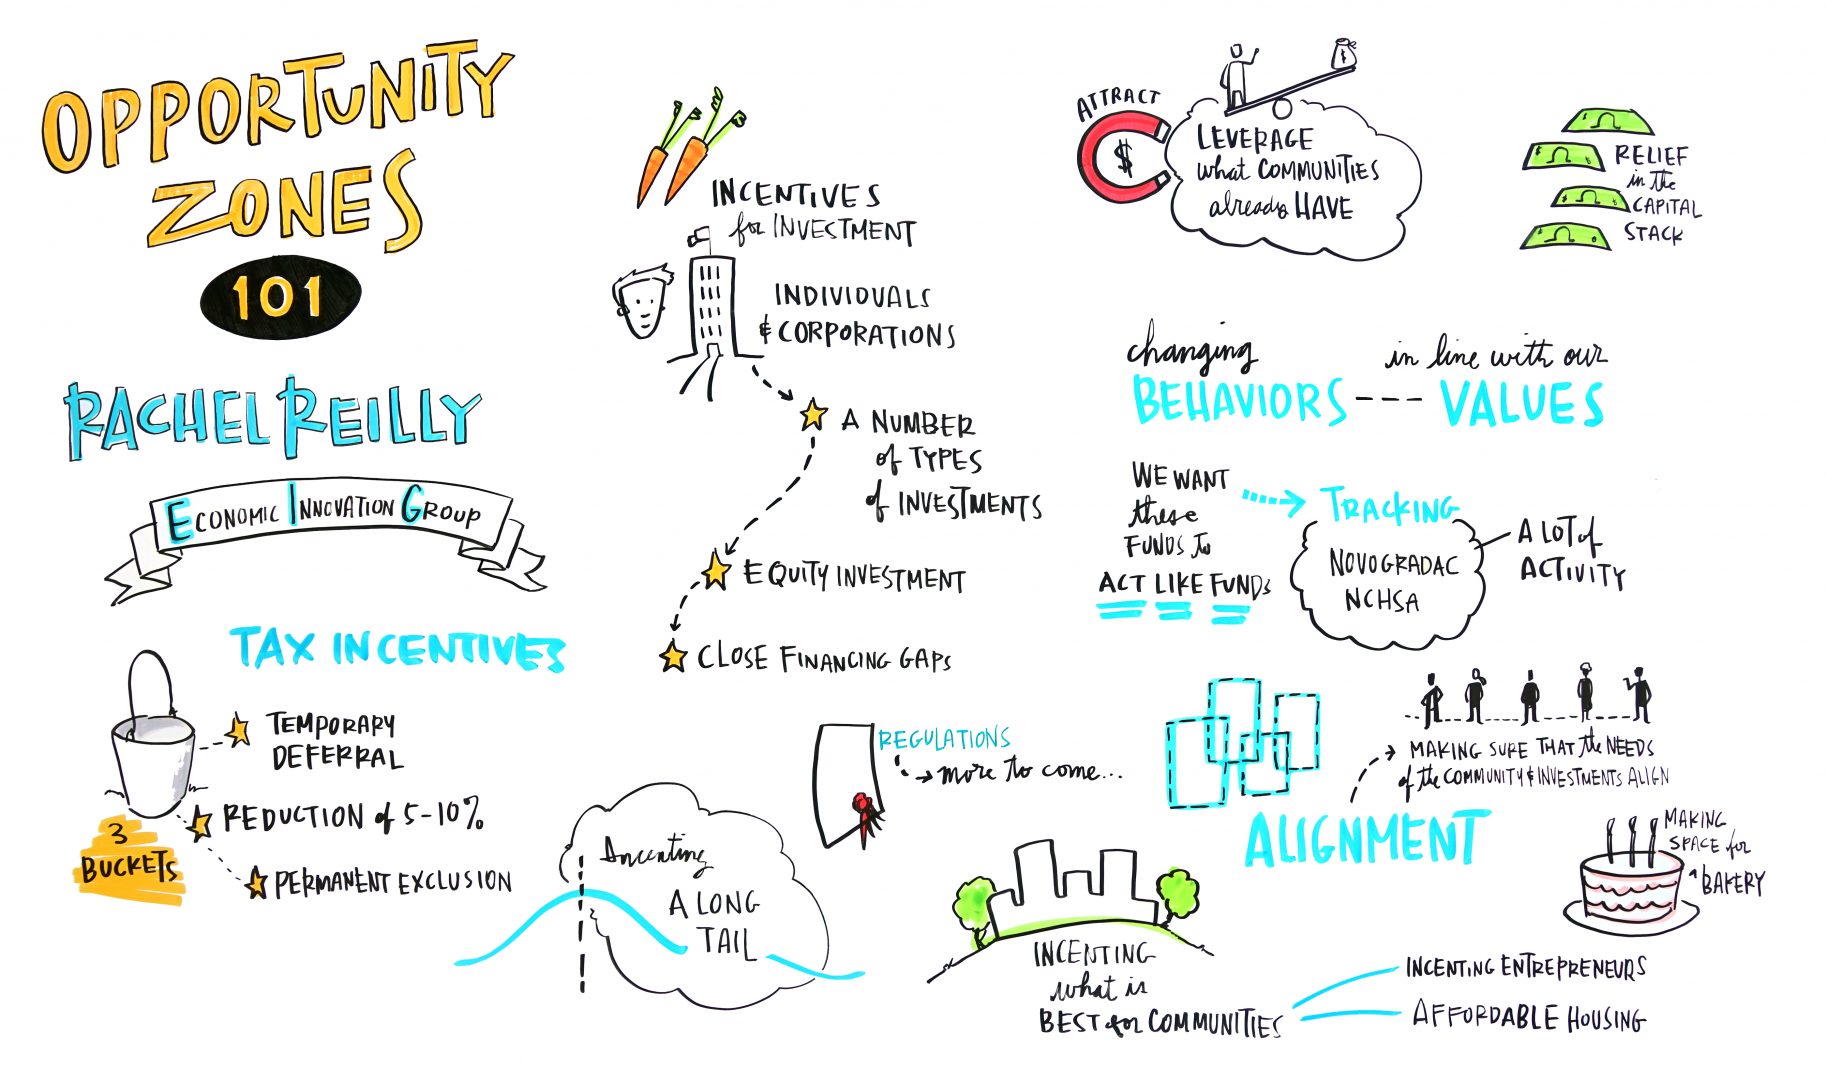 OPPORTUNITY
ZONES
101
RACHEL REILLY
ECONOMIC INNOVATION GROUP
TAX INCENTIVES
TEMPORARY
DEFERRAL
REDUCTION of 5-10%
PERMANENT EXCLUSION
3
BUCKETS
INCENTIVES
for INVESTMENT
INDIVIDUALS
& CORPORATIONS
A NUMBER
of TYPES
of INVESTMENTS
EQUITY INVESTMENT
CLOSE FINANCING GAPS
REGULATIONS
more to come...
Incenting
A LONG
TAIL
ATTRACT
$
$
LEVERAGE
what COMMUNITIES
already HAVE
RELIEF
in the
CAPITAL
STACK
changing
BEHAVIORS --- in line with our
VALUES
WE WANT
these
FUNDS to
ACT LIKE FUNDS
TRACKING
NOVOGRADAC
NCHSA
A LOT of
ACTIVITY
MAKING SURE THAT the NEEDS
of the COMMUNITY & INVESTMENTS ALIGN
ALIGNMENT
MAKING
SPACE for
A BAKERY
INCENTING
what is
BEST for COMMUNITIES
INCENTING ENTREPRENEURS
AFFORDABLE HOUSING